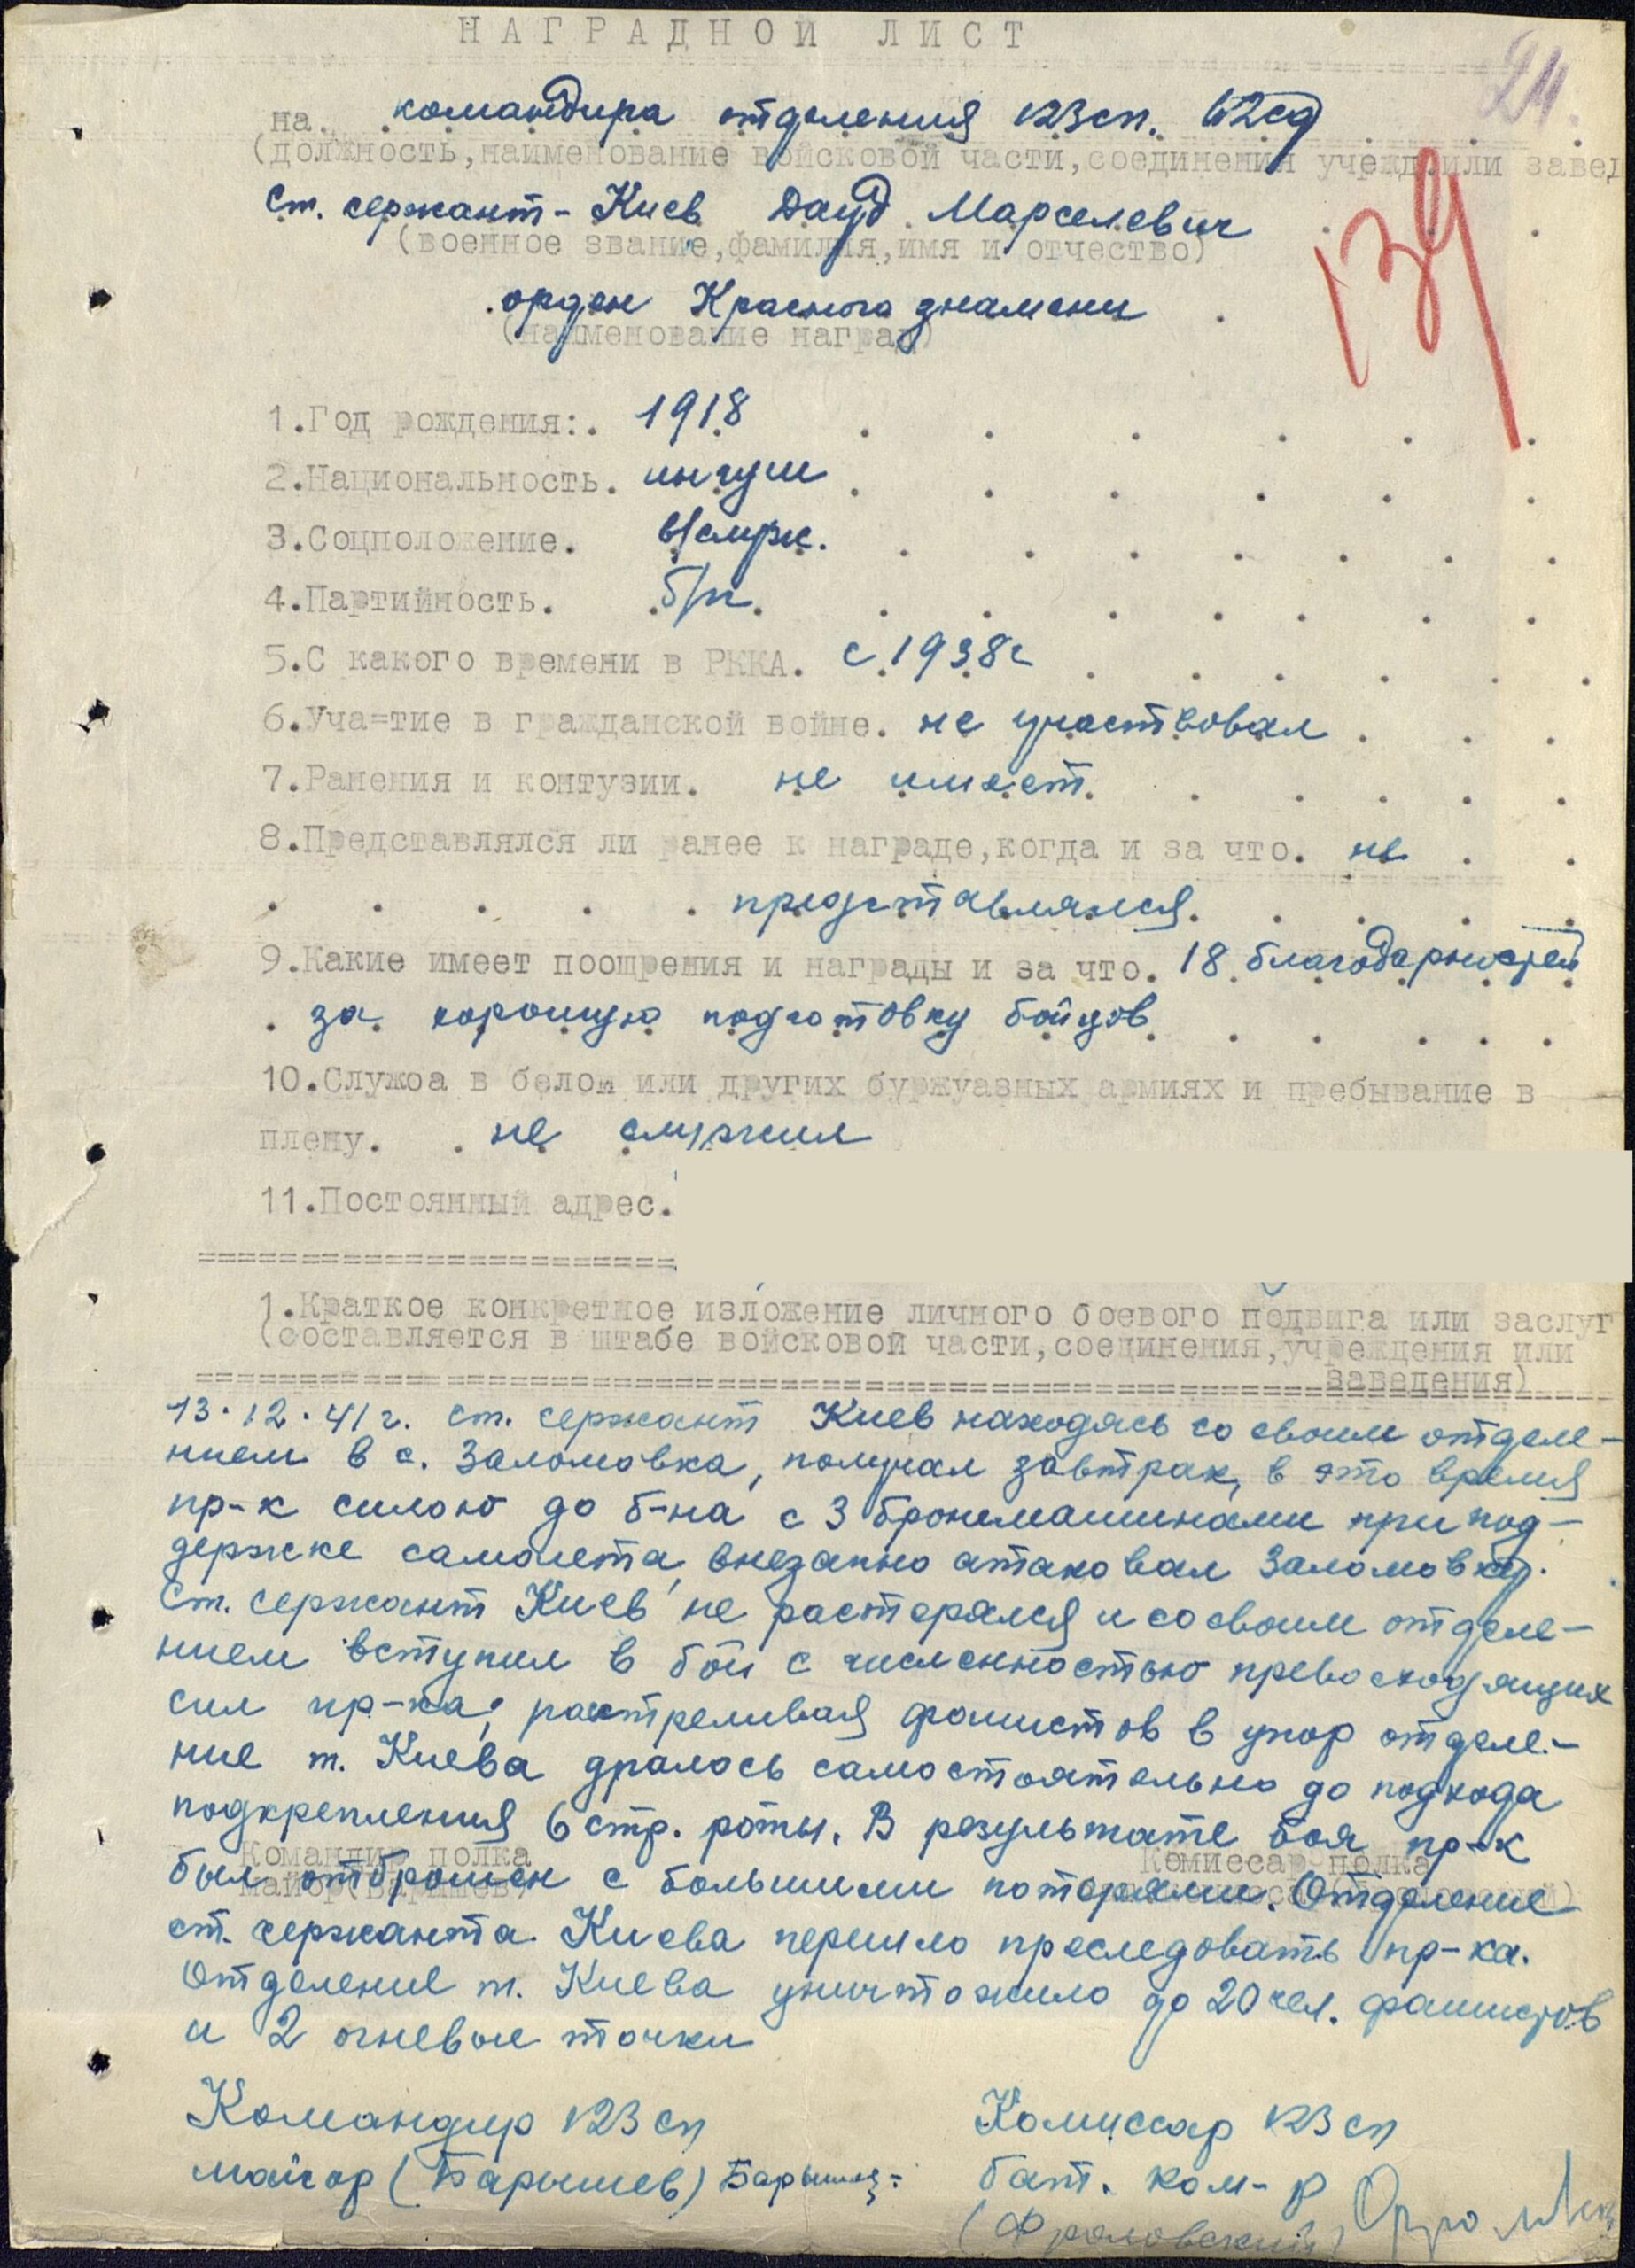 НАГРАДНОЙ ЛИСТ
24.
на командира отделения 123 сп. 62 сд
(должность, наименование войсковой части, соединения учрежд или завед
Ст. сержант - Киев Дауд Марселевич
(военное звание, фамилия, имя и отчество)
139
орден Красного знамени
(наименование наград)
1. Год рождения: 1918
2. Национальность. ингуш
3. Соцположение. в/служ.
4. Партийность. б/п.
5. С какого времени в РККА. с 1938 г
6. Уча=тие в гражданской войне. не участвовал
7. Ранения и контузии. не имеет.
8. Представлялся ли ранее к награде, когда и за что. не
представлялся.
9. Какие имеет поощрения и награды и за что. 18 благодарностей
за хорошую подготовку бойцов
10. Служба в белой или других буржуазных армиях и пребывание в
плену. не служил
11. Постоянный адрес.
1. Краткое конкретное изложение личного боевого подвига или заслуг
(составляется в штабе войсковой части, соединения, учреждения или
заведения)
13.12.41 г. ст. сержант Киев находясь со своим отделе-
нием в с. Заломовка, получал завтрак, в это время
пр-к силою до б-на с 3 бронемашинами при под-
держке самолета, внезапно атаковал Заломовку.
Ст. сержант Киев не растерялся и со своим отделе-
нием вступил в бой с численностью превосходящих
сил пр-ка, растреливая фашистов в упор отделе-
ние т. Киева дралось самостоятельно до подхода
подкрепления 6 стр. роты. В результате боя пр-к
Командир полка Комиссар полка
был отброшен с большими потерями. Отделение
майор (Барышев)
ст. сержанта Киева перешло преследовать пр-ка.
Отделение т. Киева уничтожило до 20 чел. фашистов
и 2 огневые точки
Командир 123 сп Комиссар 123 сп
майор (Барышев) Барышев бат. ком-р
(Фроловский)